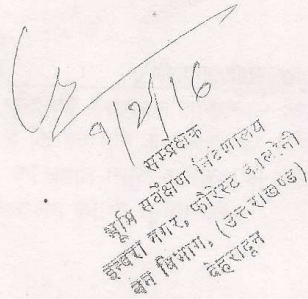 9/2/16
सम्प्रेक्षक
भूमि सर्वेक्षण निदेशालय
इन्दिरा नगर, फोरेस्ट कालोनी
वन विभाग, (उत्तराखण्ड)
देहरादून